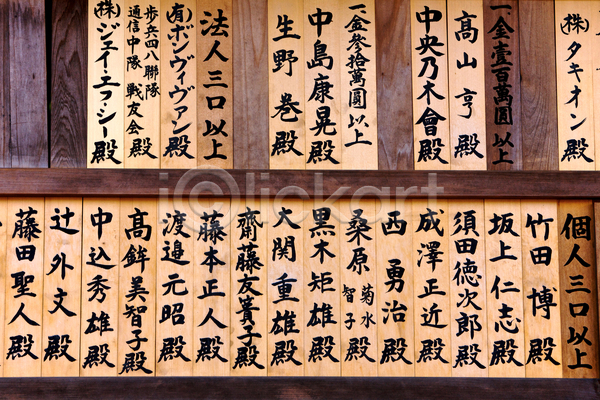 (株)タキオン殿
一金壹百萬圓以上
高山亨殿
中央乃木會殿
一金参拾萬圓以上
中島康晃殿
生野巻殿
法人三口以上
(有)ボンヴィヴァン殿
歩兵四八聯隊
通信中隊戦友会殿
(株)ジェイ・エフ・シー殿
個人三口以上
竹田博殿
坂上仁志殿
須田徳次郎殿
成澤正近殿
西勇治殿
桑原菊水
智子殿
黒木矩雄殿
大関重雄殿
齋藤友賽子殿
藤本正人殿
渡邉元昭殿
高鉾美智子殿
中込秀雄殿
辻外文殿
藤田聖人殿
iclickart